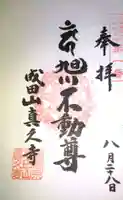 奉拝
八月二十八日
旭川不動尊
成田山真久寺